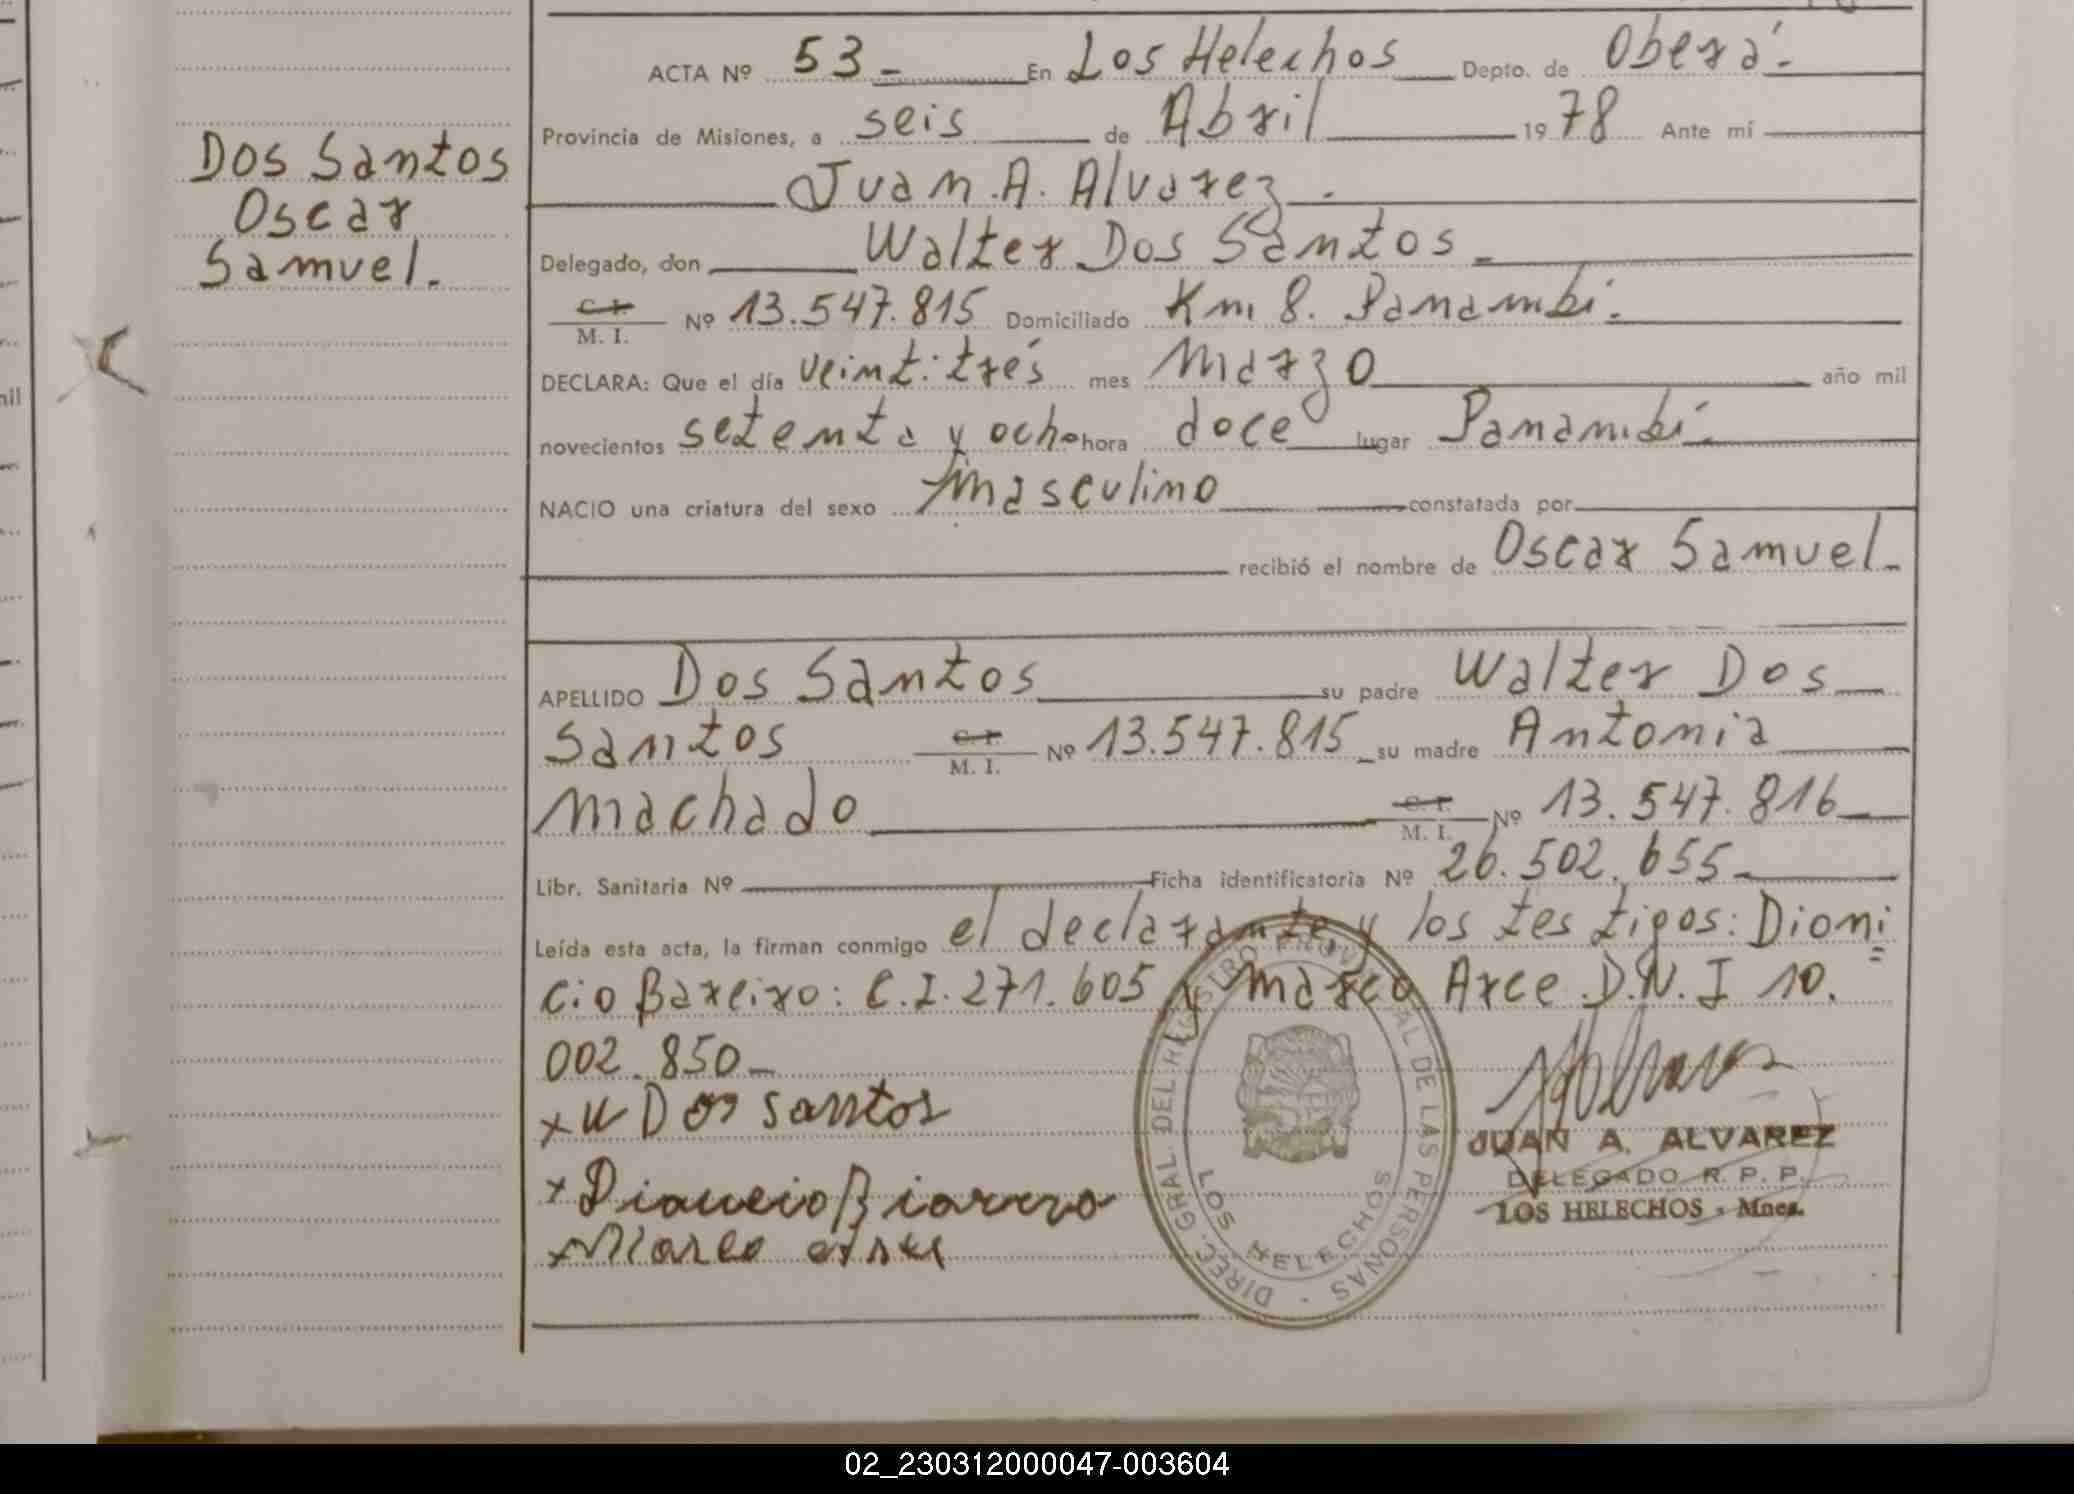 Dos Santos
Oscar
Samuel.
ACTA Nº 53 - En Los Helechos Depto. de Oberá -
Provincia de Misiones, a seis de Abril 1978 Ante mí
Juan. A. Alvarez -
Delegado, don Walter Dos Santos -
C. I.
M. I. Nº 13.547.815 Domiciliado Km 8. Panambí -
DECLARA: Que el día veintitrés mes Marzo año mil
novecientos setenta y ocho hora doce lugar Panambí -
NACIO una criatura del sexo masculino constatada por
recibió el nombre de Oscar Samuel -
APELLIDO Dos Santos su padre Walter Dos
Santos C. I. M. I. Nº 13.547.815 su madre Antonia
Machado C. I. M. I. Nº 13.547.816
Libr. Sanitaria Nº Ficha identificatoria Nº 26.502.655
Leída esta acta, la firman conmigo el declarante y los testigos: Dioni=
cio Bareiro: C.I. 271.605 y Marco Arce D.N.I 10.
002.850 -
x W Dos santos
x
x Marco
DIREC. GRAL. DEL REGISTRO PROVINCIAL DE LAS PERSONAS -
LOS HELECHOS
JUAN A. ALVAREZ
DELEGADO R. P. P.
LOS HELECHOS - Mnes.
02_230312000047-003604